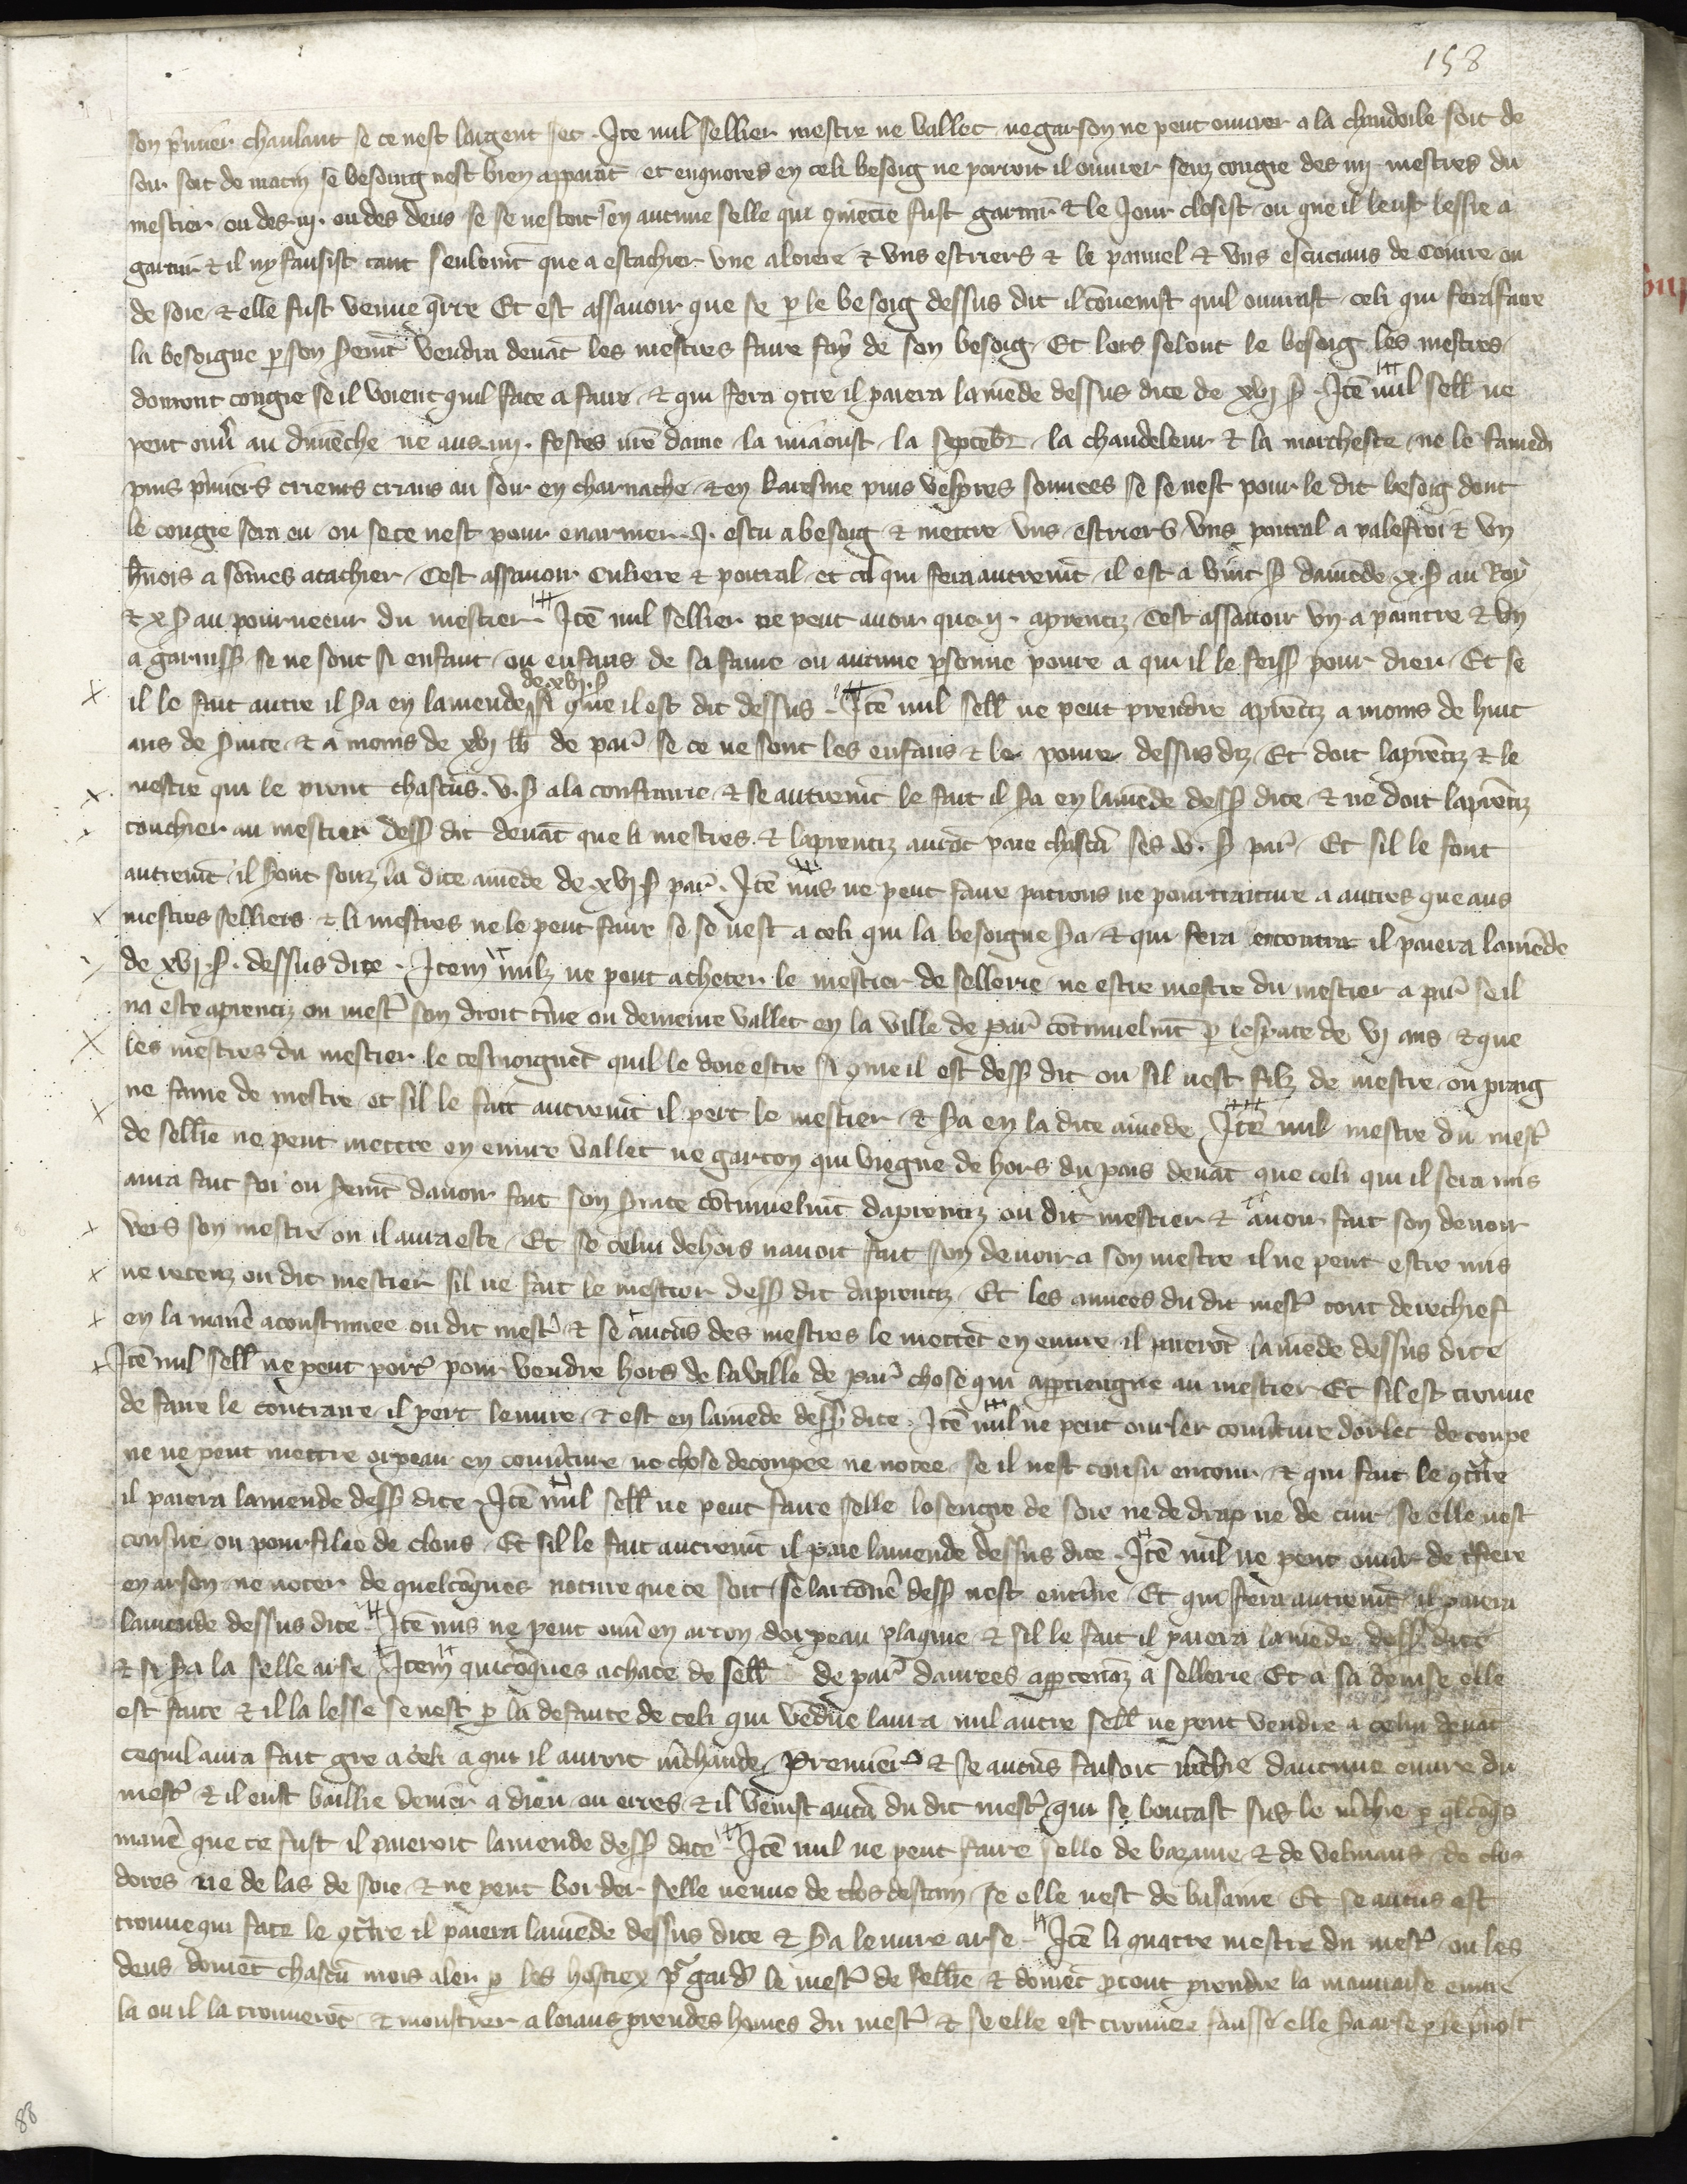 158
son pmier chaulant se ce nest largent sec. Ite nul sellier mestre ne vallet ne garson ne peut ouvrer a la chandeile soit de
soir soit de matin se besoing nest bien apparāt et enquores en celi besoig ne porroit il ouvrer senz congie des iiij mestres du
mestier ou des iij. ou des deus se se nestoit en aucune selle qui 9mēcie fust garnir & le Jour closist ou que il leust lessie a
garnir & il ny fausist tant seulemt que a estachier une aloiere & uns estriers & le pannel & uns escucions de Couire ou
de soie & elle fust venue qrre Et est assavoir que se p le besoig dessus dit il cōvenist quil ouvrast celi qui fera faire
la besoigne p son semt vendra devāt les mestres faire foy de son besoig Et lors selont le besoig les mestres
donront congie se il voient quil face a faire & qui fera 9tre il paiera lamēde dessus dite de xvj s. Itē nul sell ne
peut ouvr au dimēche ne aus iiij. festes nre dame la miaoust la septēbr la chandeleur & la marchesce ne le samedi
puis pmiers crieurs crians au soir en charnache & en karesme puis vespres sonnees se se nest pour le dit besoig dont
le congie sera eu ou se ce nest pour enarmer .j. escu a besoig & mettre uns estriers uns poitral a palefroi & un
hnois a sōmes atachier Cest assavoir Culiere & poitral et cil qui fera autremt il est a vint s damēde x. s au Roy
& x s au pourveeur du mestier. Itē nul sellier ne peut avoir que ij. aprentiz Cest assavoir un a paintre & un
a garniss se ne sont si enfant ou enfans de sa fame ou aucune psonne povre a qui il le feiss pour dieu Et se
de xvj. s
il le fait autre il sa en lamende si gme il est dit dessus. Itē nul sell ne peut prendre aprentiz a moins de huit
ans de svice & a moins de xvj lb de par se ce ne sont les enfans & le povre dessus diz Et doit laprētiz & le
mestre qui le prent chascūs. v. s a la confrarie & se autremt le fait il sa en lamēde dess dite & ne doit laprētiz
touchier au mestier dess dit devāt que li mestres & laprentiz aurōt paie chascū ses v. s par Et sil le font
autremt il sont souz la dite amēde de xvj s par. Itē nus ne peut faire patrons ne pourtraiture a autres que aus
mestres selliers & li mestres ne le peut faire se se nest a celi qui la besoigne sa & qui fera encontre il paiera lamēde
de xvj. s. dessus dite. Item nulz ne peut acheter le mestier de sellerie ne estre mestre du mestier a par se il
na este aprentiz ou mest son droit tme ou demeure vallet en la ville de par cōtinuelmt p lespace de vj ans & que
les mestres du mestier le tesmoignēt quil le doie estre si 9me il est dess dit ou sil nest filz de mestre ou praig
ne fame de mestre et sil le fait autremt il pert le mestier & sa en la dite amēde Itē nul mestre du mest
de sellie ne peut mettre en euvre vallet ne garcon qui viegne de hors du pais devāt que celi qui il sera mis
aura fait foi ou semt davoir fait son svice cōtinuelmt daprentiz ou dit mestier & avoir fait son devoir
vers son mestre ou il aura este Et se celui dehors navoit fait son devoir a son mestre il ne peut estre mis
ne recenz ou dit mestier sil ne fait le mestier dess dit daprentiz Et les annees du dit mest tout derechief
en la manē acoustumee ou dit mest & se aucūs des mestres le mettēt en euvre il paierōt lamēde dessus dite
Itē nul sell ne peut port pour vendre hors de la ville de par chose qui apptiengne au mestier Et sil est trouve
de faire le contraire il pert leuvre & est en lamēde dess dite. Itē nul ne peut ourler couvture dorlet decoupe
ne ne peut mettre orpeau en couvture ne chose decoupee ne notee se il nest cousu entour & qui fait le 9tre
il paiera lamende dess dite Itē nul sell ne peut faire selle losengie de soie ne de drap ne de cuir se elle nest
cousue ou pourfilee de clous Et sil le fait autremt il paie lamende dessus dite. Itē nul ne peut ouvr de
en arson ne noter de quelcōques noture que ce soit se lartonē dess nest entiere Et qui fera autremt il paiera
lamende dessus dite Itē nus ne peut ouvr en arcon dorpeau plaque & sil le fait il paiera lamēde dess dite
& si sa la selle arse Item quicōques achate de sell de par danrees apptenaz a sellerie Et a sa devise elle
est faite & il la lesse se nest p la defaute de celi qui vēdue laura nul autre sell ne peut vendre a celui devāt
ce quil aura fait gre a celi a qui il auroit mchande premier & se aucūs faisoit mchie daucune euvre du
mest & il eust baillie denier a dieu ou erres & il venist aucū du dit mest qui se boutast sus le mchie p qlcōqs
manē que ce fust il paieroit lamende dess dite Itē nul ne peut faire selle de bazanne & de veluiaus de clos
dores ne de las de soie & ne peut border selle neuve de clos destain se elle nest de basanne Et se aucūs est
trouve qui face le 9tre il paiera lamēde dessus dite & sa leuvre arse. Itē li quatre mestre du mest ou les
deus doivēt chascū mois aler p les hostiex pr gard le mest de sellie & doivēt ptout prendre la mauvaise euvre
la ou il la trouverōt & monstrer a loiaus preudes hōmes du mest & se elle est trouvee fausse elle sa arse p le pvost
88